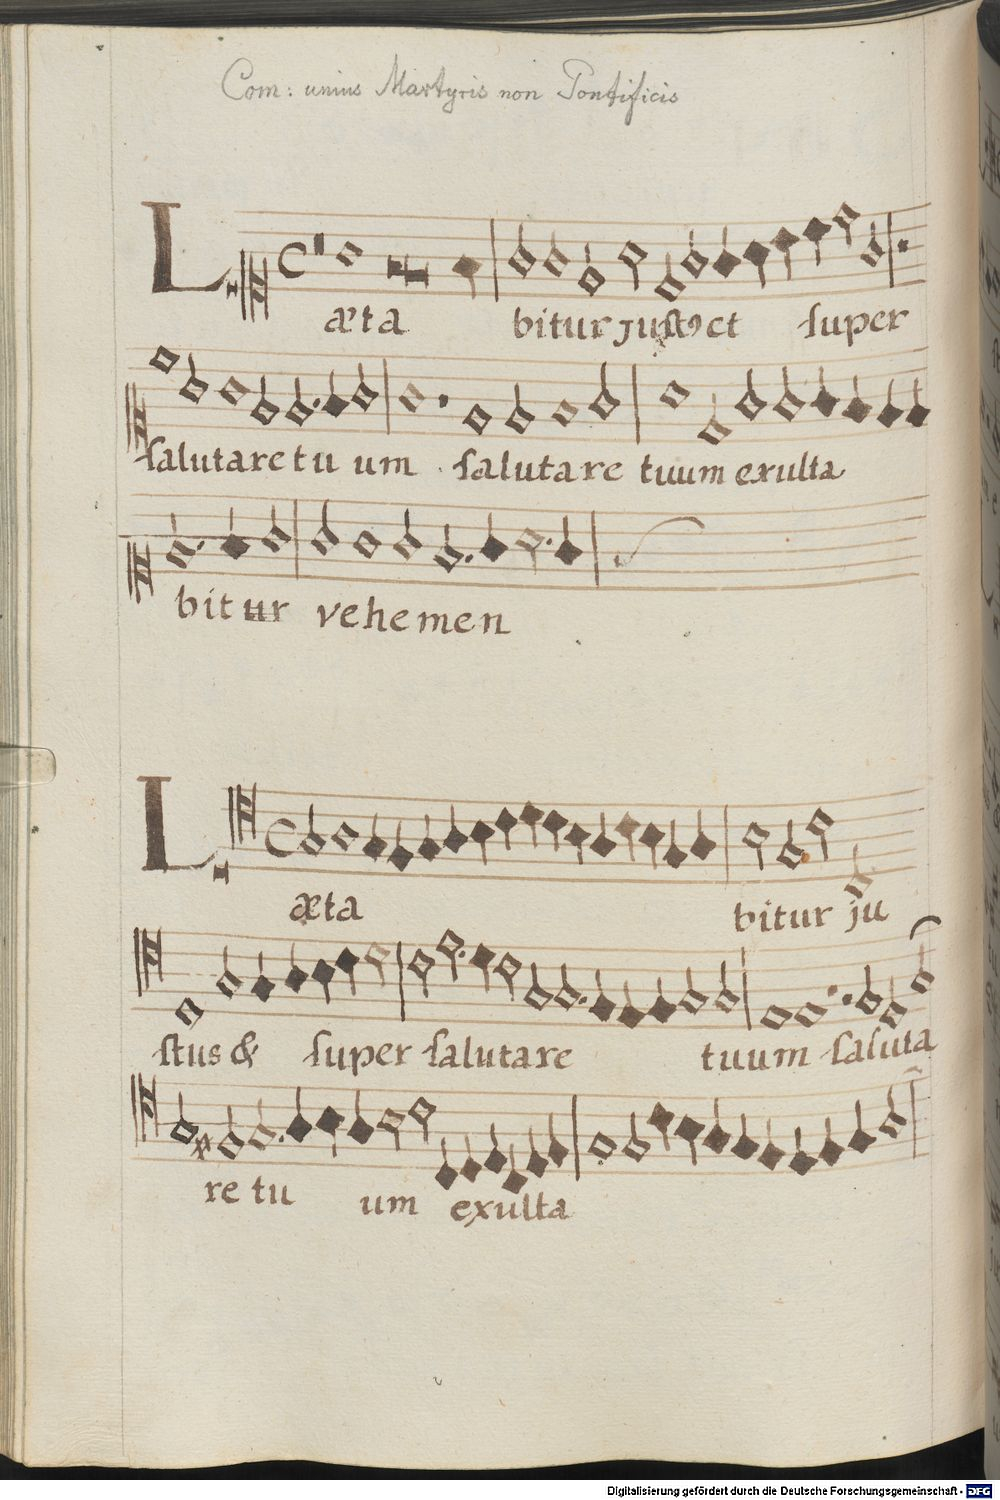 Com: unius Martyris non Pontificis
Læta bitur justꝰ et super
salutare tu um salutare tuum exulta
bitur vehemen
Læta bitur ju
stus & super salutare tuum saluta
re tu um exulta
Digitalisierung gefördert durch die Deutsche Forschungsgemeinschaft - DFG